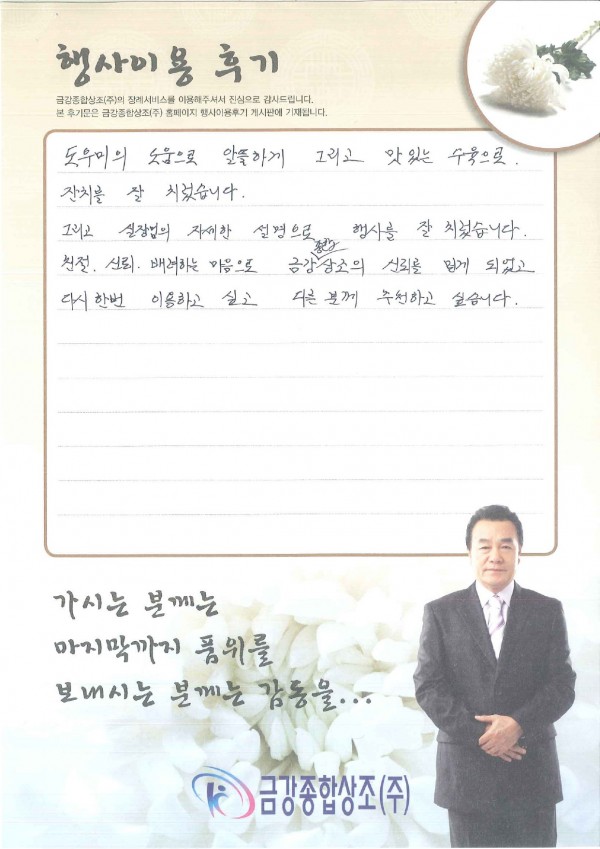 행사이용 후기
금강종합상조(주)의 장례서비스를 이용해주셔서 진심으로 감사드립니다.
본 후기문은 금강종합상조(주) 홈페이지 행사이용후기 게시판에 기재됩니다.
도우미의 도움으로 알뜰하게 그리고 맛있는 수육으로.
잔치를 잘 치렀습니다.
그리고 실장님의 자세한 설명으로 행사를 잘 치렀습니다.
친절. 신뢰. 배려하는 마음으로 금강종합상조의 신뢰를 믿게 되었고
다시 한번 이용하고 싶고 다른 분께 추천하고 싶습니다.
가시는 분께는
마지막까지 품위를
보내시는 분께는 감동을...
금강종합상조(주)